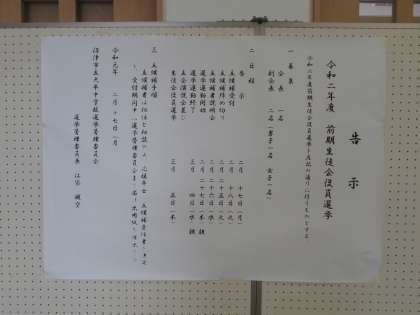 告示
令和二年度 前期生徒会役員選挙
令和二年度前期生徒会役員選挙を左記の通りに行うものとする
一 要員
会長 一名
副会長 二名(男子一名 女子一名)
二 日程
告示 二月 十七日(月)
立候補受付 二月 十八日(火)
立候補者締め切り 二月 二十六日(水)
立候補者説明会 二月 二十六日(水)
選挙運動開始 二月 二十七日(木)朝
選挙運動終了 三月 四日(水)朝
立会演説会並び
生徒会役員選挙 三月 五日(木)
三 立候補手順
立候補者は担任と相談の上、
受付期間中に選挙管理委員会
令和元年 二月 十七日
沼津市立大平中学校選挙管理委員会
選挙管理委員長